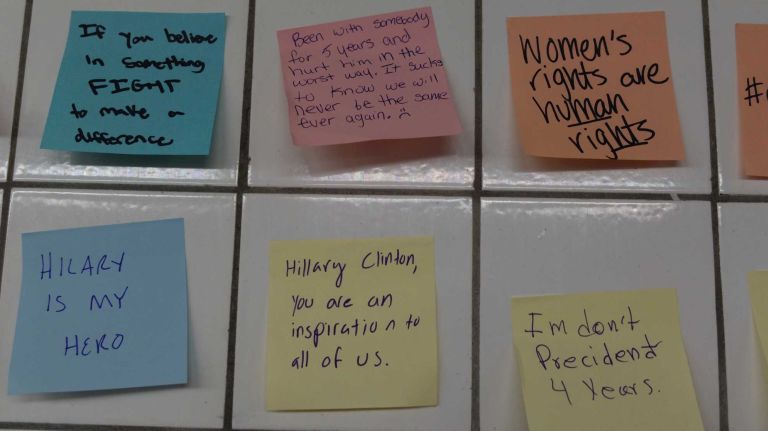 If you believe
in something
FIGHT
to make a
difference
Been with somebody
for 5 years and
hurt him in the
worst way. It sucks
to know we will
never be the same
ever again. :(
Women's
rights are
human
rights
#
HILARY
IS MY
HERO
Hillary Clinton,
you are an
inspiration to
all of us.
I'm don't
Precident
4 Years.